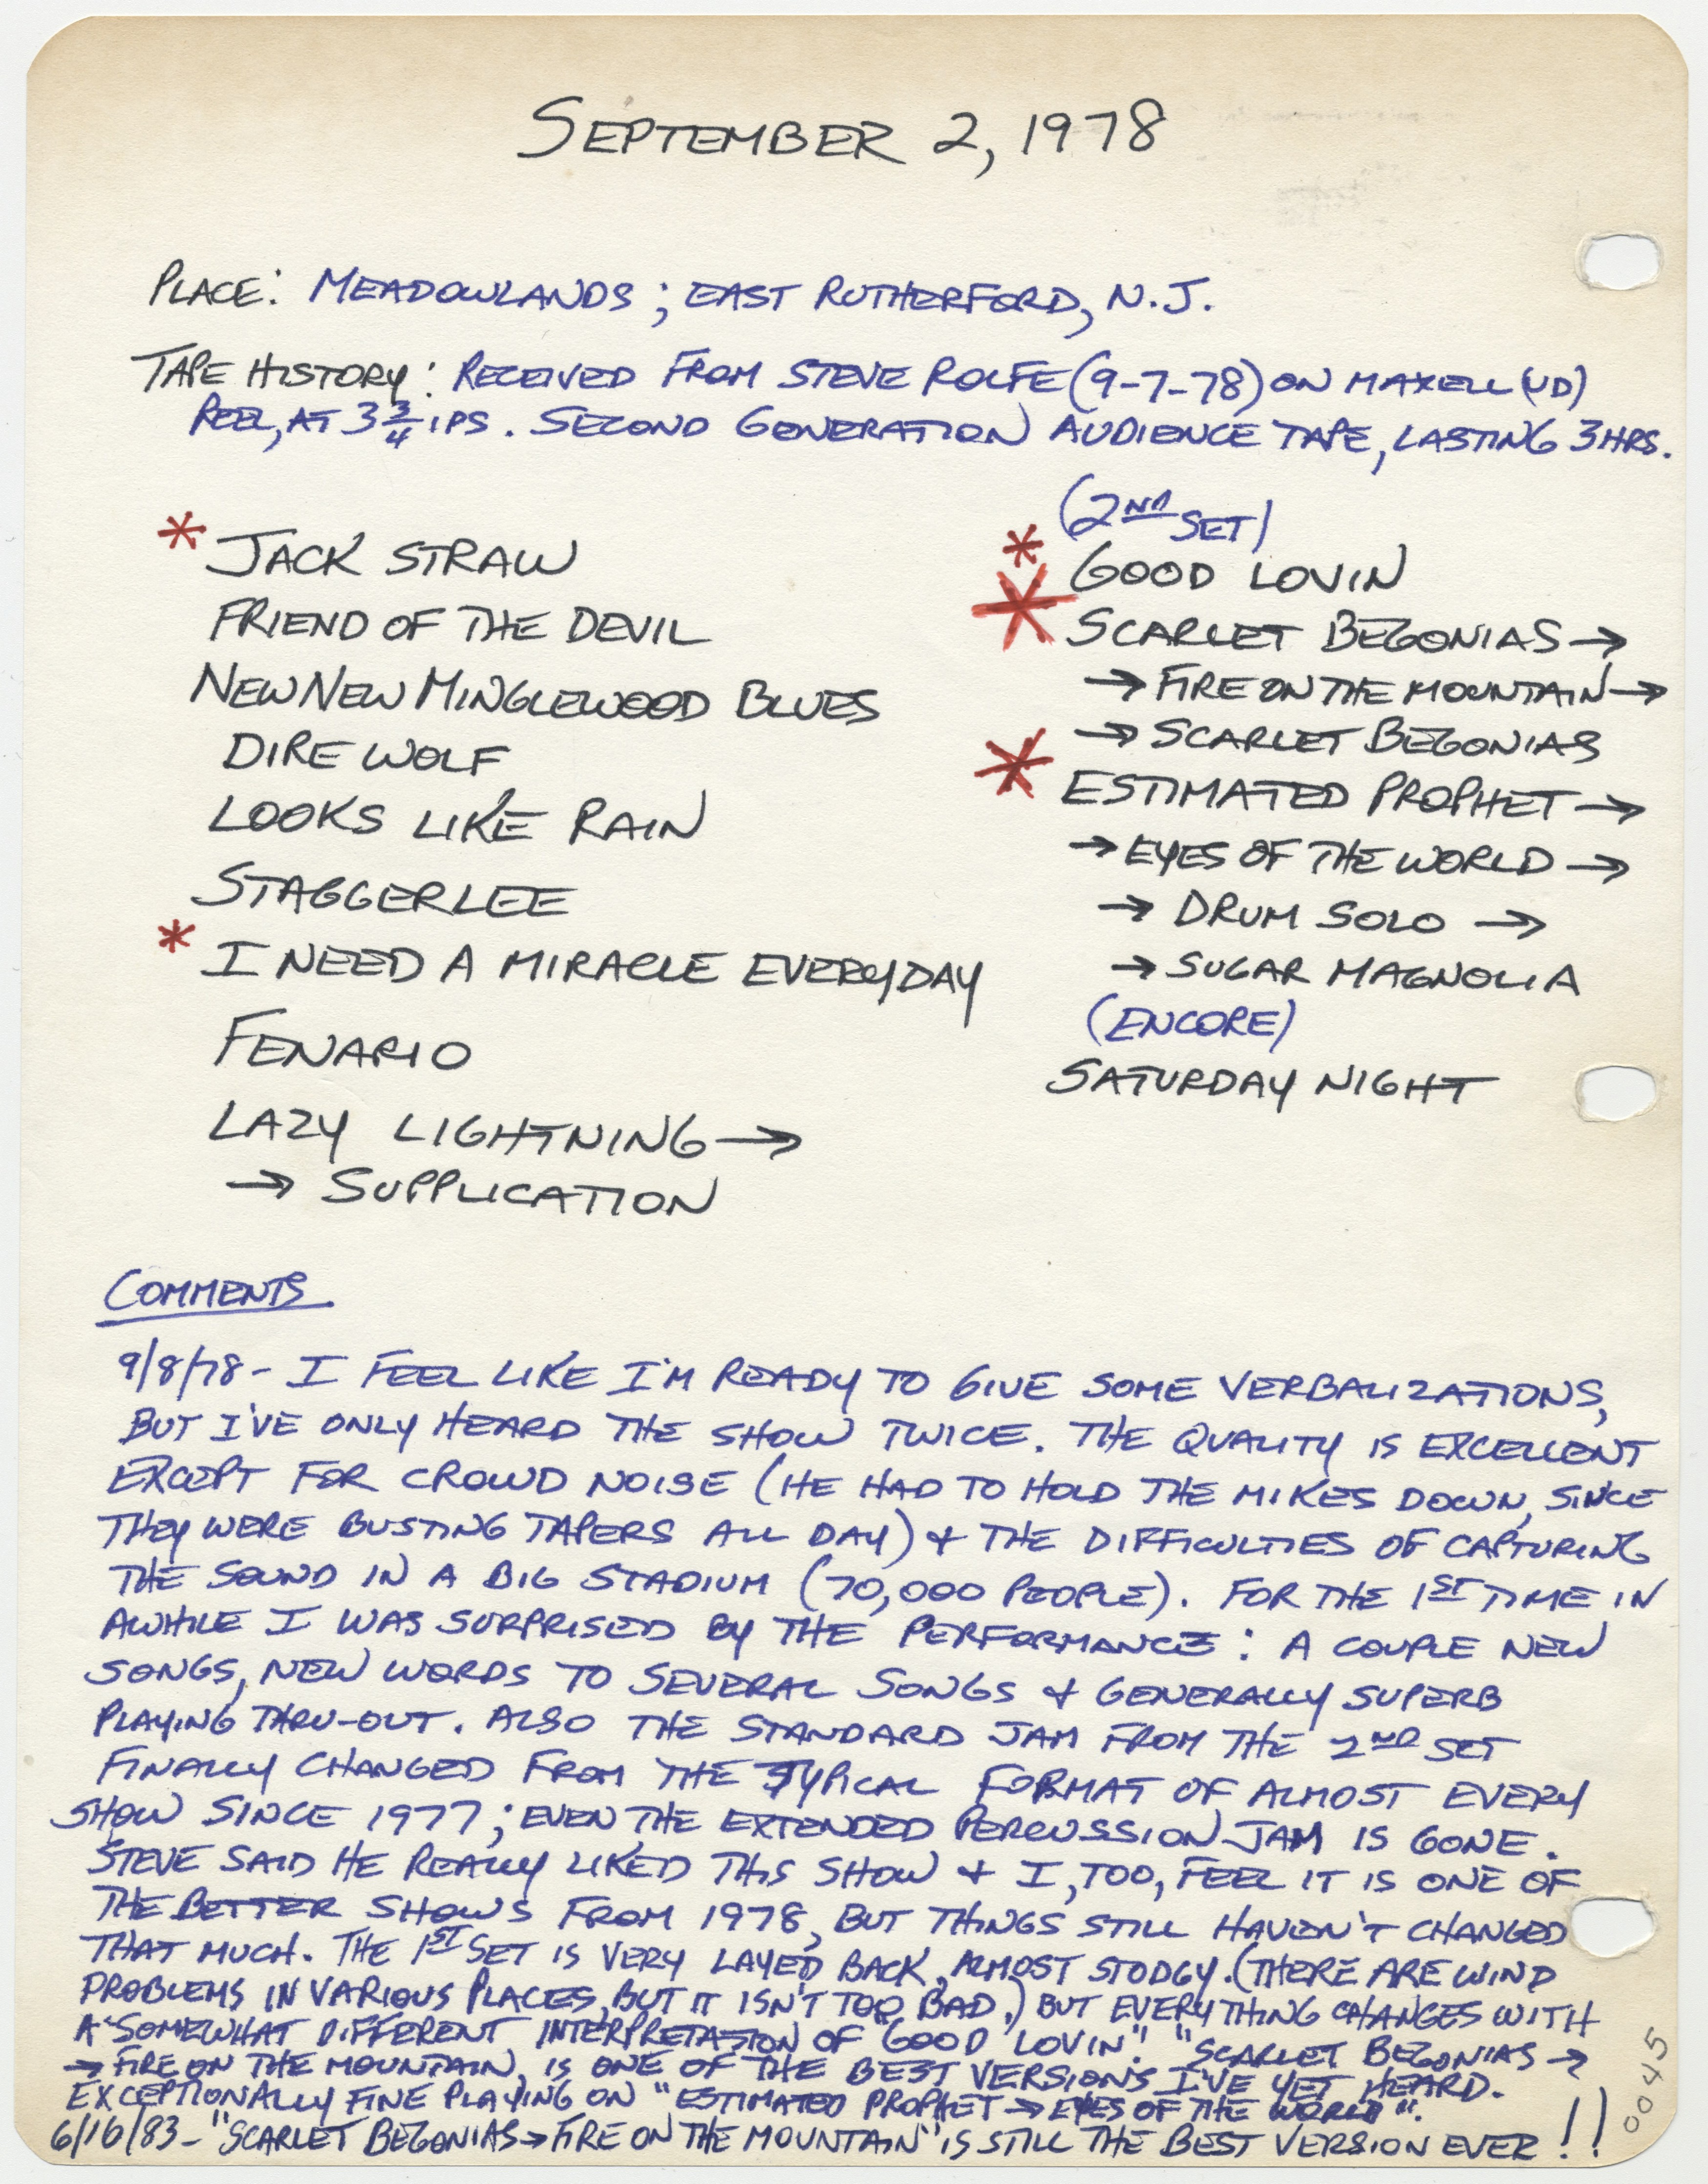 SEPTEMBER 2, 1978
PLACE: MEADOWLANDS; EAST RUTHERFORD, N.J.
TAPE HISTORY: RECEIVED FROM STEVE ROLFE (9-7-78) ON MAXELL (UD)
REEL, AT 3 3/4 IPS. SECOND GENERATION AUDIENCE TAPE, LASTING 3 HRS.
* JACK STRAW
FRIEND OF THE DEVIL
NEW NEW MINGLEWOOD BLUES
DIRE WOLF
LOOKS LIKE RAIN
STAGGERLEE
* I NEED A MIRACLE EVERYDAY
FENARIO
LAZY LIGHTNING →
→ SUPPLICATION
(2ND SET)
* GOOD LOVIN
* SCARLET BEGONIAS →
→ FIRE ON THE MOUNTAIN →
→ SCARLET BEGONIAS
* ESTIMATED PROPHET →
→ EYES OF THE WORLD →
→ DRUM SOLO →
→ SUGAR MAGNOLIA
(ENCORE)
SATURDAY NIGHT
COMMENTS
9/8/78 - I FEEL LIKE I'M READY TO GIVE SOME VERBALIZATIONS,
BUT I'VE ONLY HEARD THE SHOW TWICE. THE QUALITY IS EXCELLENT
EXCEPT FOR CROWD NOISE (HE HAD TO HOLD THE MIKES DOWN, SINCE
THEY WERE BUSTING TAPERS ALL DAY) & THE DIFFICULTIES OF CAPTURING
THE SOUND IN A BIG STADIUM (70,000 PEOPLE). FOR THE 1ST TIME IN
AWHILE I WAS SURPRISED BY THE PERFORMANCE: A COUPLE NEW
SONGS, NEW WORDS TO SEVERAL SONGS & GENERALLY SUPERB
PLAYING THRU-OUT. ALSO THE STANDARD JAM FROM THE 2ND SET
FINALLY CHANGED FROM THE TYPICAL FORMAT OF ALMOST EVERY
SHOW SINCE 1977; EVEN THE EXTENDED PERCUSSION JAM IS GONE.
STEVE SAID HE REALLY LIKED THIS SHOW & I, TOO, FEEL IT IS ONE OF
THE BETTER SHOWS FROM 1978, BUT THINGS STILL HAVEN'T CHANGED
THAT MUCH. THE 1ST SET IS VERY LAYED BACK, ALMOST STODGY. (THERE ARE WIND
PROBLEMS IN VARIOUS PLACES, BUT IT ISN'T TOO BAD.) BUT EVERYTHING CHANGES WITH
A SOMEWHAT DIFFERENT INTERPRETATION OF "GOOD LOVIN". "SCARLET BEGONIAS →
→ FIRE ON THE MOUNTAIN, IS ONE OF THE BEST VERSIONS I'VE YET HEARD.
EXCEPTIONALLY FINE PLAYING ON "ESTIMATED PROPHET → EYES OF THE WORLD".
6/16/83 - "SCARLET BEGONIAS → FIRE ON THE MOUNTAIN" IS STILL THE BEST VERSION EVER!!
0045